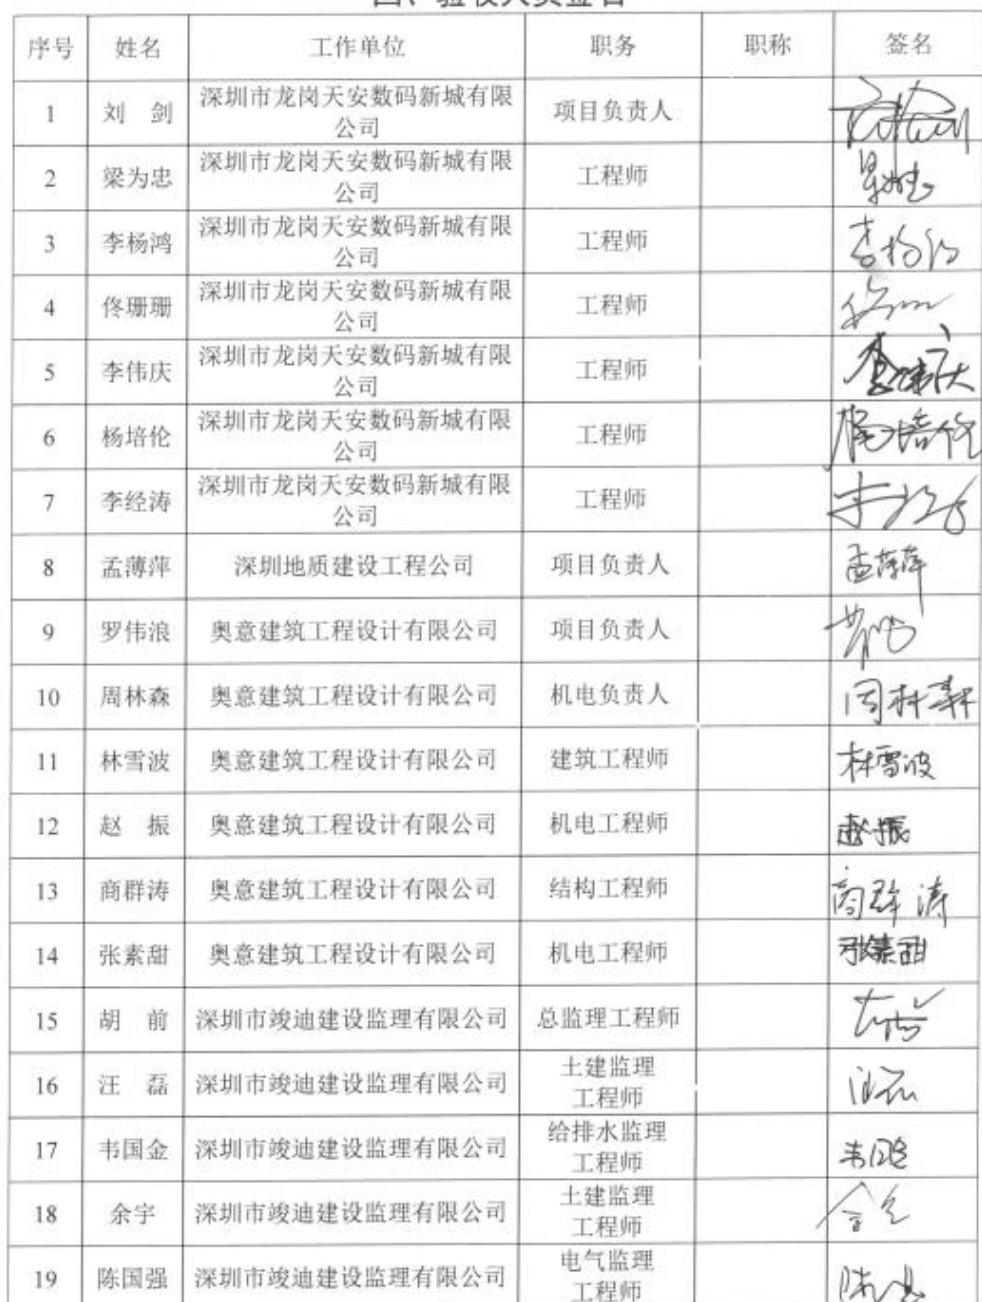 四、验收人员签名
序号 姓名 工作单位 职务 职称 签名
1 刘 剑 深圳市龙岗天安数码新城有限 项目负责人
公司
2 梁为忠 深圳市龙岗天安数码新城有限 工程师
公司
3 李杨鸿 深圳市龙岗天安数码新城有限 工程师 李杨鸿
公司
4 佟珊珊 深圳市龙岗天安数码新城有限 工程师
公司
5 李伟庆 深圳市龙岗天安数码新城有限 工程师 李伟庆
公司
6 杨培伦 深圳市龙岗天安数码新城有限 工程师 杨培伦
公司
7 李经涛 深圳市龙岗天安数码新城有限 工程师
公司
8 孟薄萍 深圳地质建设工程公司 项目负责人 孟薄萍
9 罗伟浪 奥意建筑工程设计有限公司 项目负责人
10 周林森 奥意建筑工程设计有限公司 机电负责人 周林森
11 林雪波 奥意建筑工程设计有限公司 建筑工程师 林雪波
12 赵 振 奥意建筑工程设计有限公司 机电工程师 赵振
13 商群涛 奥意建筑工程设计有限公司 结构工程师 商群涛
14 张素甜 奥意建筑工程设计有限公司 机电工程师 张素甜
15 胡 前 深圳市竣迪建设监理有限公司 总监理工程师
16 汪 磊 深圳市竣迪建设监理有限公司 土建监理
工程师
17 韦国金 深圳市竣迪建设监理有限公司 给排水监理
工程师
18 余宇 深圳市竣迪建设监理有限公司 土建监理
工程师
19 陈国强 深圳市竣迪建设监理有限公司 电气监理
工程师